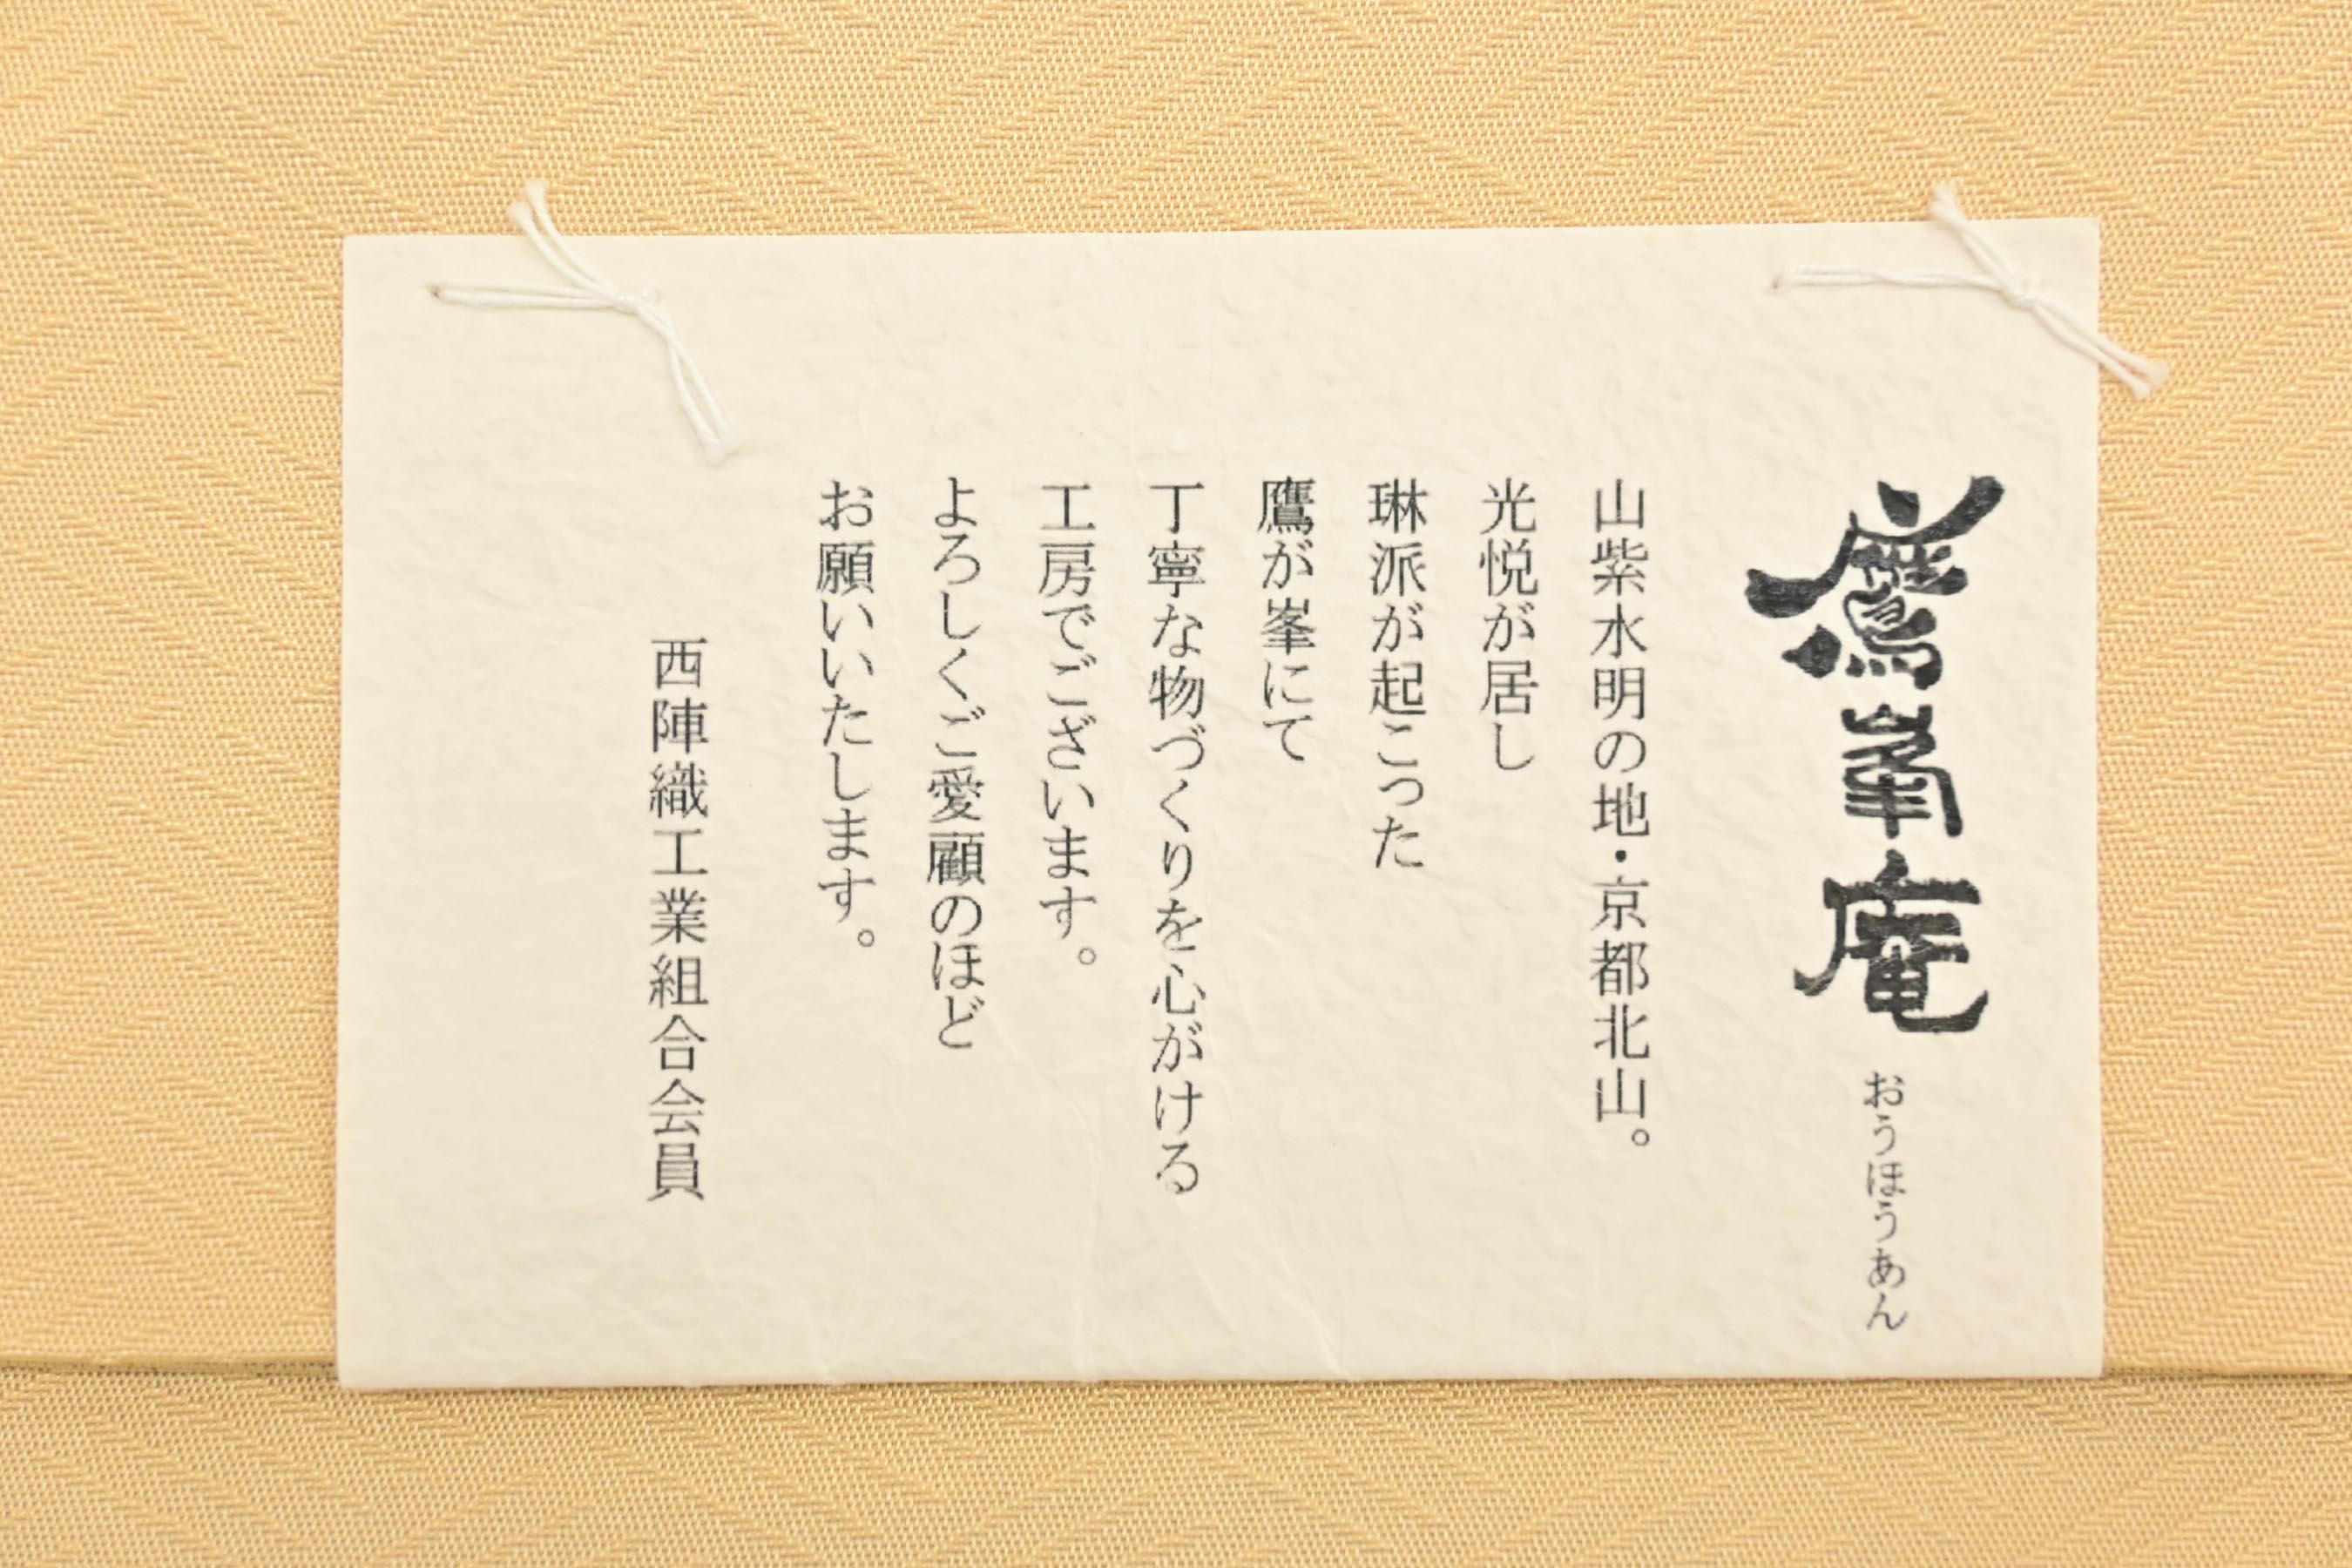 鷹峯庵 おうほうあん
山紫水明の地・京都北山。
光悦が居し
琳派が起こった
鷹が峯にて
丁寧な物づくりを心がける
工房でございます。
よろしくご愛顧のほど
お願いいたします。
西陣織工業組合会員